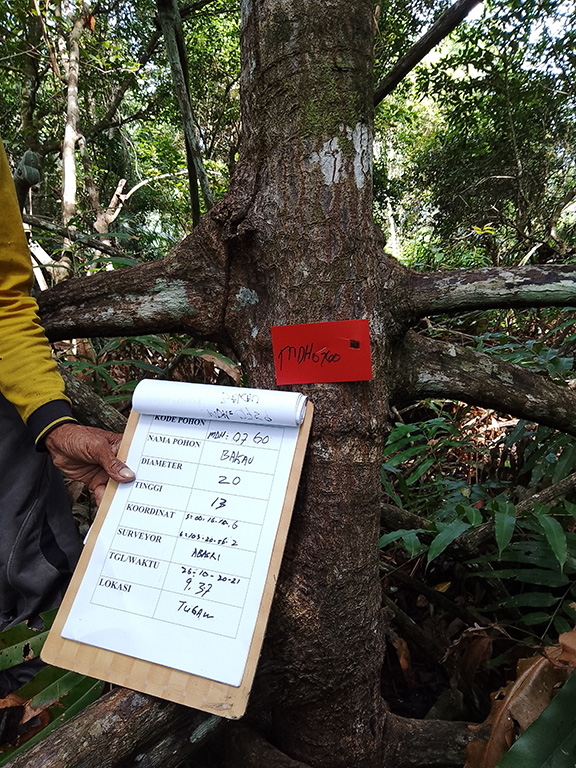 MDH 0760
KODE POHON MDH: 0760
NAMA POHON BAKAU
DIAMETER 20
TINGGI 13
KOORDINAT S: 00-16-10,6
E: 103-20-56,2
SURVEYOR ABASRI
TGL/WAKTU 26-10-20-21
9.37
LOKASI TUGAW